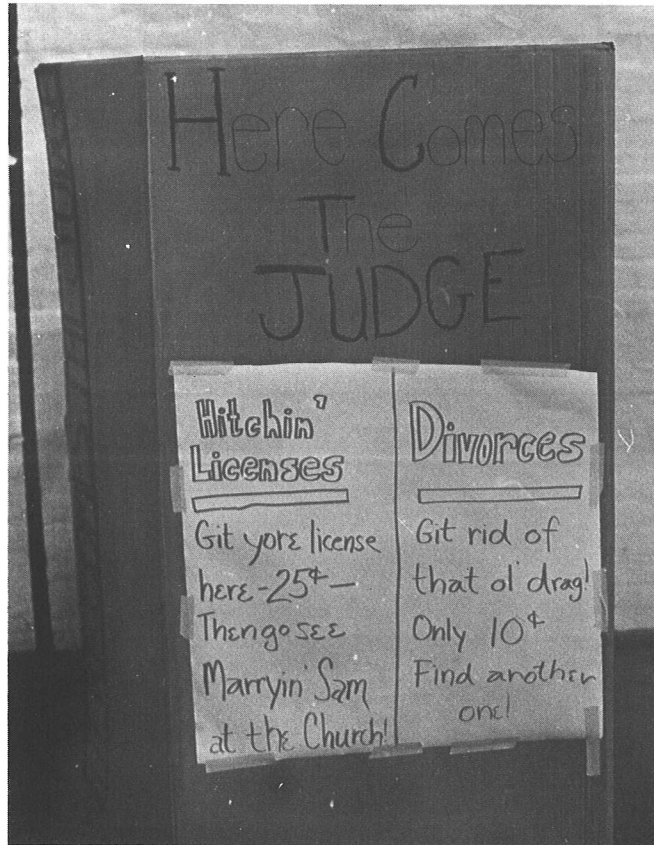 Here Comes
The
JUDGE
Hitchin'
Licenses
Git yore license
here-25¢—
Then go see
Marryin' Sam
at the Church!
Divorces
Git rid of
that ol' drag!
Only 10¢
Find another
one!